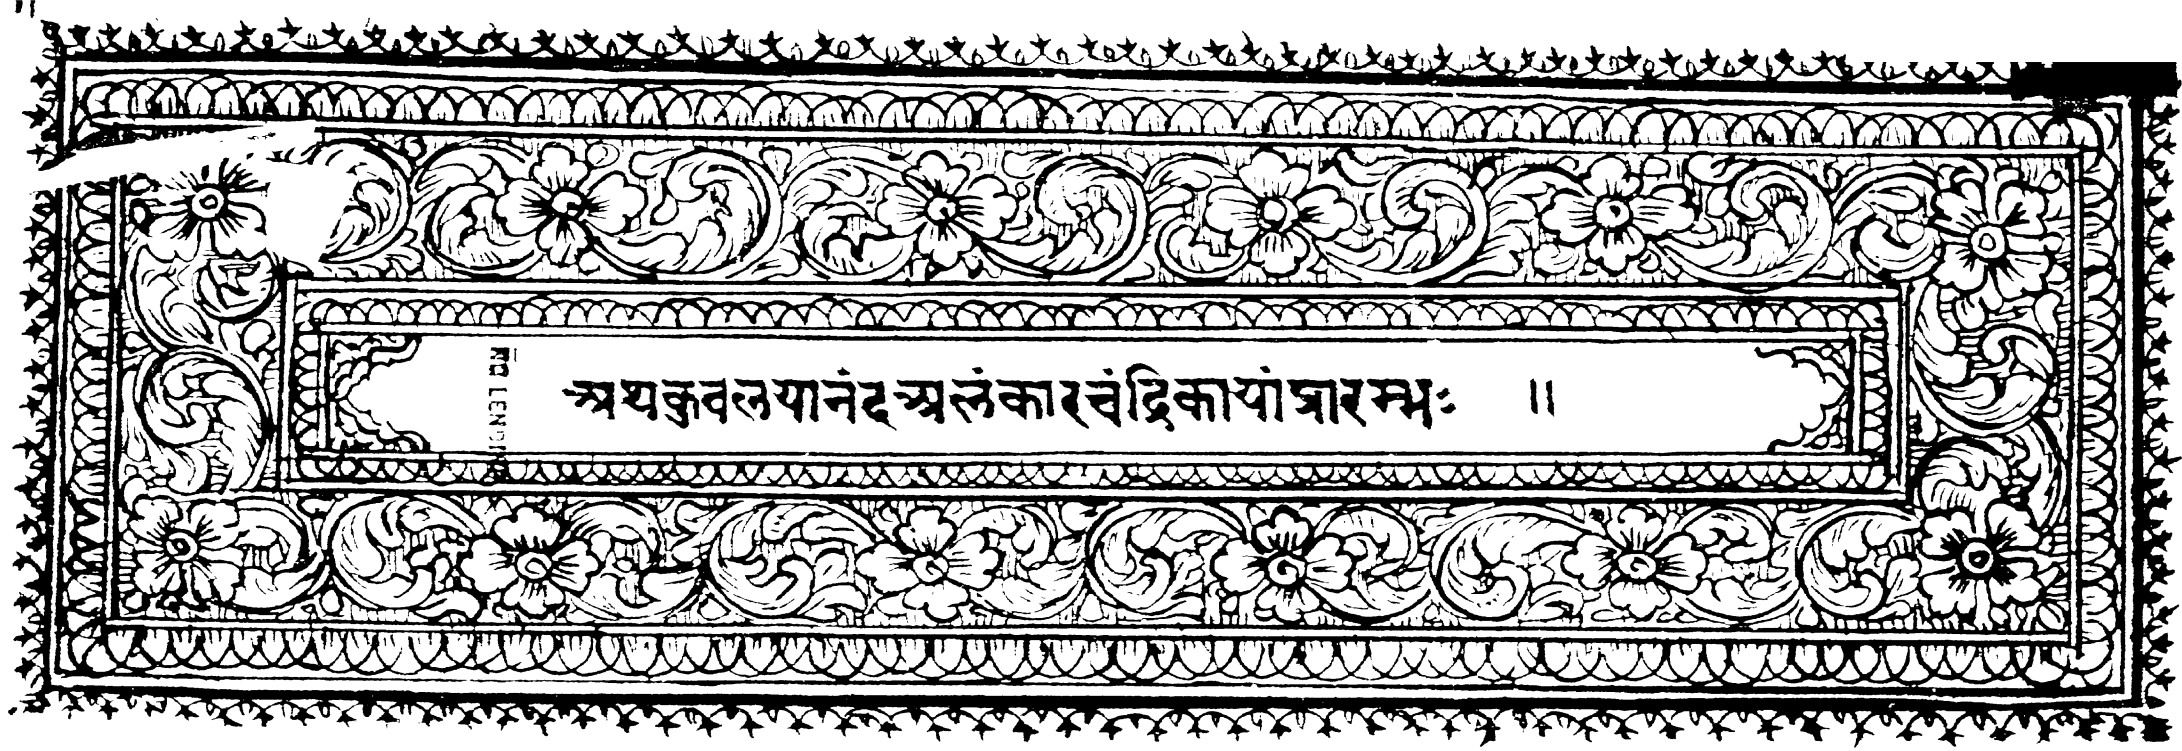 अथकुवलयानंदअलंकारचंद्रिकायांप्रारम्भः ॥